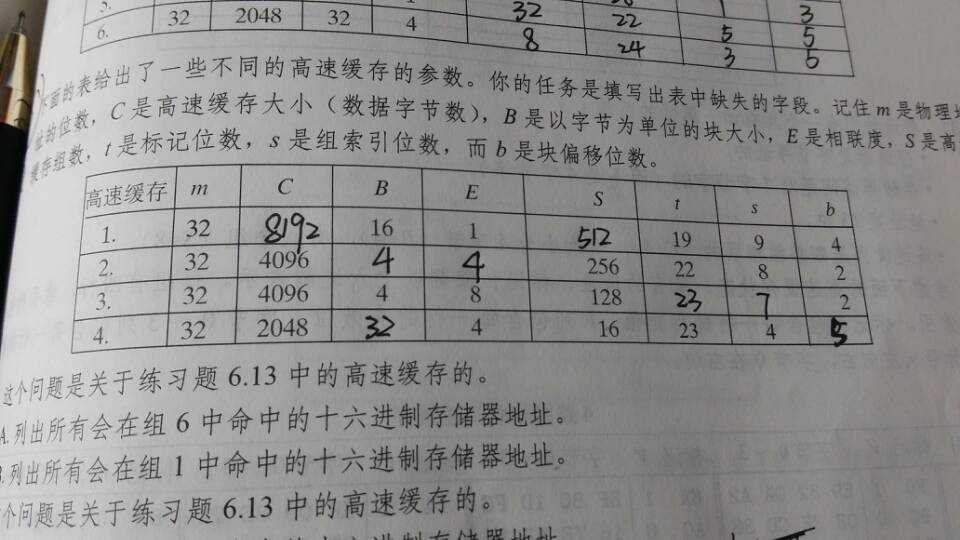 6. 32 2048 32 4 8 24 3 5
面的表给出了一些不同的高速缓存的参数。你的任务是填写出表中缺失的字段。记住 m 是物理
的位数，C 是高速缓存大小（数据字节数），B 是以字节为单位的块大小，E 是相联度，S 是高
缓存组数，t 是标记位数，s 是组索引位数，而 b 是块偏移位数。
高速缓存 m C B E S t s b
1. 32 8192 16 1 512 19 9 4
2. 32 4096 4 4 256 22 8 2
3. 32 4096 4 8 128 23 7 2
4. 32 2048 32 4 16 23 4 5
这个问题是关于练习题 6.13 中的高速缓存的。
A. 列出所有会在组 6 中命中的十六进制存储器地址。
列出所有会在组 1 中命中的十六进制存储器地址。
个问题是关于练习题 6.13 中的高速缓存的。